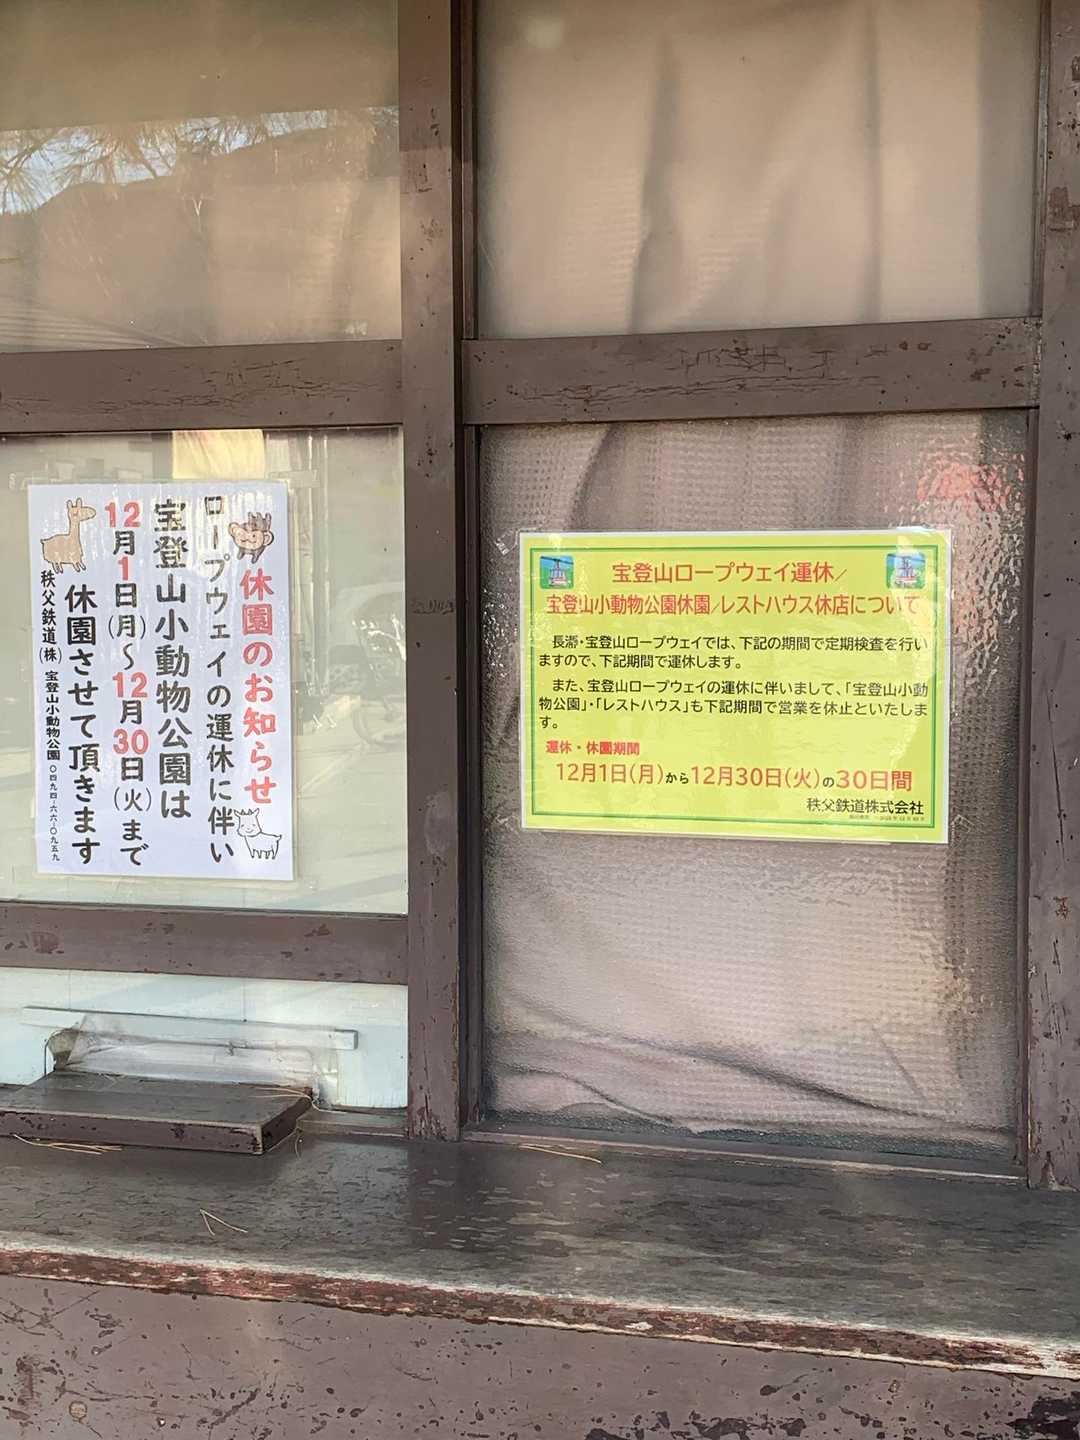 休園のお知らせ
ロープウェイの運休に伴い
宝登山小動物公園は
12月1日(月)～12月30日(火)まで
休園させて頂きます
秩父鉄道(株) 宝登山小動物公園 〇四九四-六六-〇九五九
宝登山ロープウェイ運休/
宝登山小動物公園休園/レストハウス休店について
長瀞・宝登山ロープウェイでは、下記の期間で定期検査を行い
ますので、下記期間で運休します。
また、宝登山ロープウェイの運休に伴いまして、「宝登山小動
物公園」・「レストハウス」も下記期間で営業を休止といたしま
す。
運休・休園期間
12月1日(月)から12月30日(火)の30日間
秩父鉄道株式会社